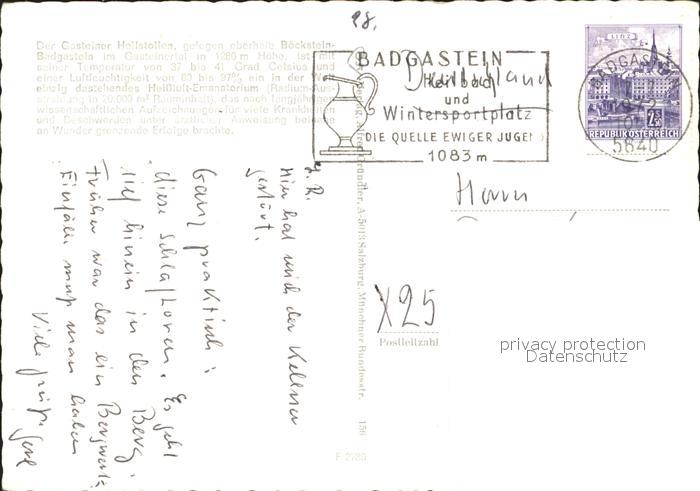 98.
Der Gasteiner Heilstollen, gelegen oberhalb Böckstein-
Badgastein im Gasteinertal in 1280 m Höhe, ist mit
seiner Temperatur von 37 bis 41 Grad Celsius und
einer Luftfeuchtigkeit von 80 bis 97% ein in der We
einzig dastehendes Heißluft-Emanatorium (Radium-Aus
in 20.000 m³ Rauminhalt), das nach langjährigen
wissenschaftlichen Aufzeichnungen für viele Krankheiten
und Beschwerden unter ärztlicher Anweisung beinahe
an Wunder grenzende Erfolge brachte.
BADGASTEIN
Heilbad
und
Wintersportplatz
DIE QUELLE EWIGER JUGEND
1083 m
Deutschland
LINZ
REPUBLIK ÖSTERREICH
BADGASTEIN
5640
Herrn
X25
Postleitzahl
A-5013 Salzburg, Münchner Bundesstr. 156
F 2780
Hier hat mich der Kellner
gestört.
Ganz praktisch:
diese Schlafloren. Es geht
tief hinein in den Berg.
Früher war das ein Bergwerk
Einfälle muß man haben
Viele Grüße
privacy protection
Datenschutz